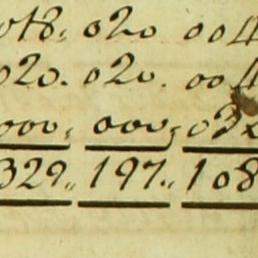 018, 020 004
020. 020. 004
000, 000, 032
329,, 197,, 108